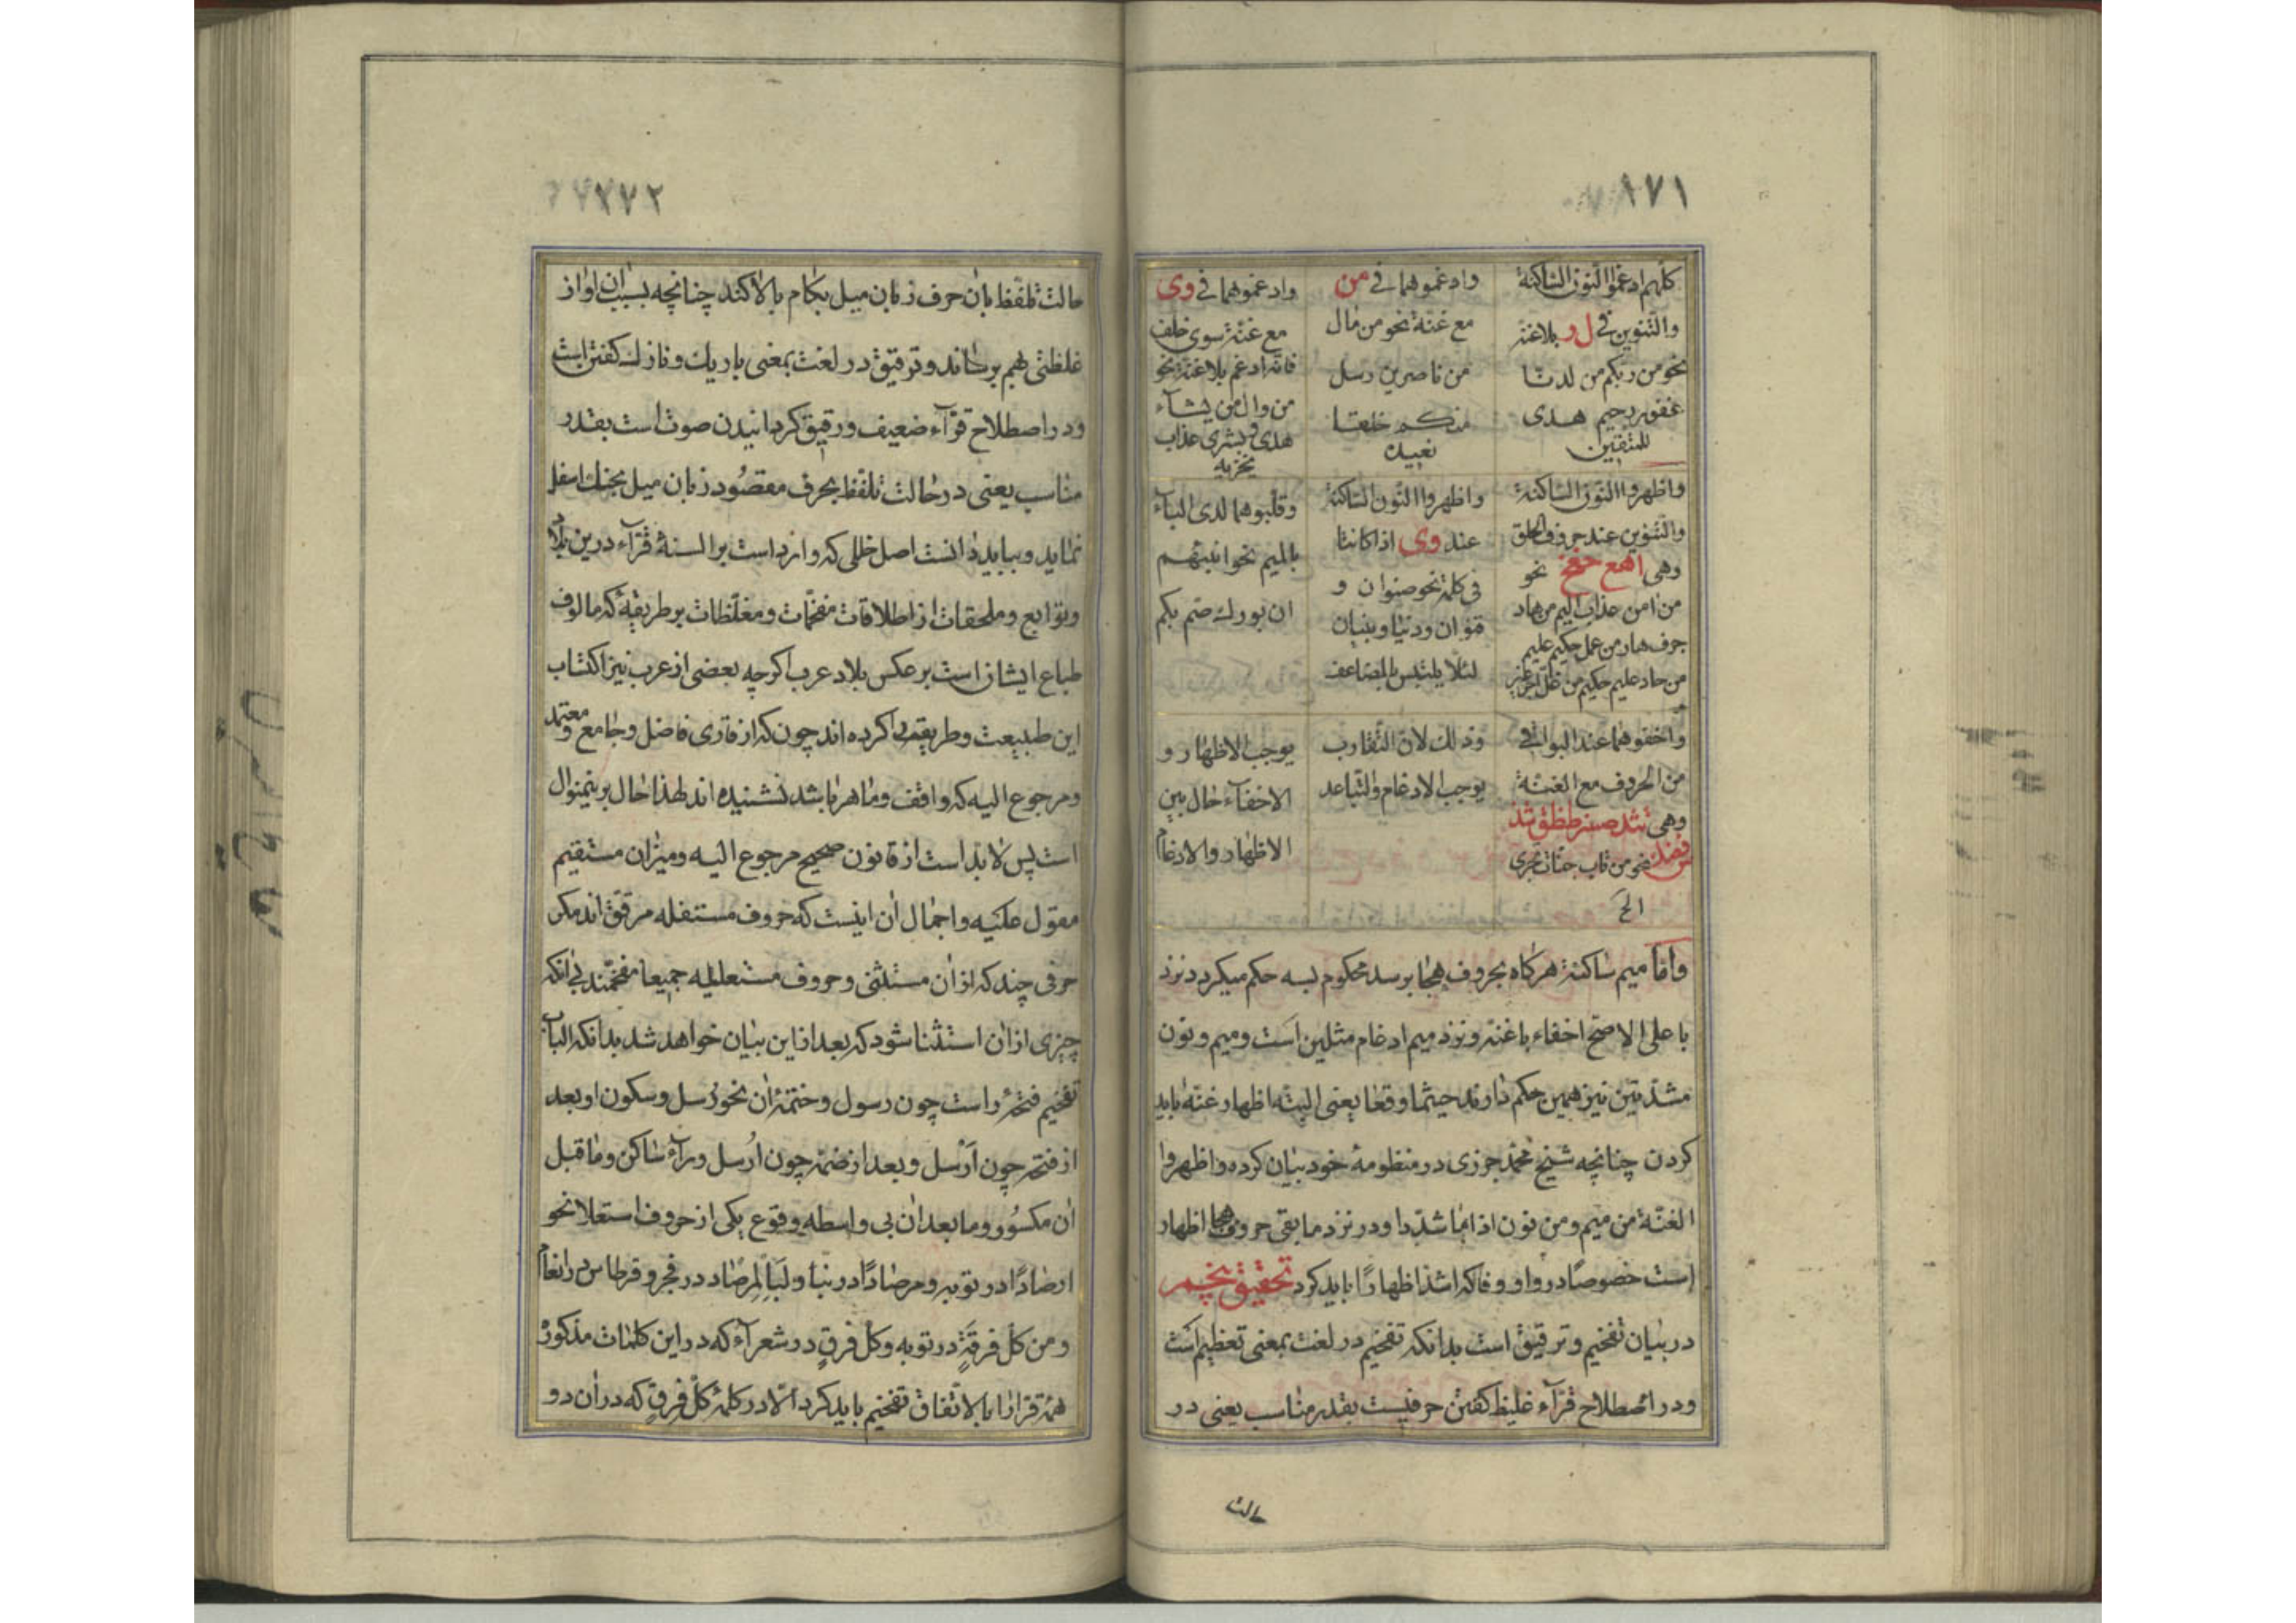 ١٧١
كلّهم ادغموا النّون الساكنة
والتّنوين في ل ر بلاغنّة
نحو من ربكم من لدنّا
غفور رحيم هدى
للمتقين
وادغموهما في من
مع غنّة نحو من مال
من ناصرين رسل
منكم خلقنا
نعيده
وادغموهما في وى
مع غنّة سوى خلف
فانّه ادغم بلاغنّة نحو
من وال من يشآء
هدى وبشرى عذاب
يخزيه
واظهروا النّون السّاكنة
والتّنوين عند حروف الحلق
وهى اهمع حغخ نحو
من امن عذاب اليم من هاد
جرف هار من عمل حكيم عليم
من حاد عليم حكيم من غل
واظهروا النّون السّاكنة
عند وى اذا كانتا
فى كلمة نحو صنوان و
قنوان ودنيا وبنيان
لئلّا يلتبس بالمضاعف
وقلبوهما لدى البآء
بالميم نحو انبئهم
ان بورك صم بكم
واخفوهما عند البواقى
من الحروف مع الغنّة
وهى
نحو من تاب جنّات تجرى
الخ
وذلك لانّ التّقارب
يوجب الادغام والتّباعد
يوجب الاظهار و
الاخفآء حال بين
الاظهار والادغام
وامّا ميم ساكنة هركاه بحروف هجا برسد محكوم لسه حكم ميكردد نزد
با على الاصحّ اخفاء باغنّه ونزد ميم ادغام مثلين است وميم ونون
مشدّدتين نيز همين حكم دارند حيثما وقعا يعنى البتّه اظهار غنّه بايد
كردن چنانچه شيخ محمّد جزرى در منظومهٔ خود بيان كرده واظهروا
الغنّة من ميم ومن نون اذا ما شدّدا ودر نزد مابقى حروف هجا اظهار
است خصوصًا در واو وفا كه اشدّ اظهارًا بايد كرد تحقيق پنجم
در بيان تفخيم وترقيق است بدانكه تفخيم در لغت بمعنى تعظيم است
ودر اصطلاح قرّآء غليظ كفتن حرفيست بقدر مناسب يعنى در
حالت
١٧٢
حالت تلفّظ بان حرف زبان ميل بكام بالا كند چنانچه بسبب ان اواز
غلظتى بهم برساند وترقيق در لغت بمعنى باريك ونازك كفتن است
ودر اصطلاح قرّآء ضعيف ورقيق كردانيدن صوت است بقدر
مناسب يعنى در حالت تلفّظ بحرف مقصود زبان ميل بحنك اسفل
نمايد وببايد دانست اصل خللى كه وارد است بر السنهٔ قرّآء درين بلاد
وتوابع وملحقات از اطلاقات مفخّمات ومغلّظات بر طريقهٔ كه مالوف
طباع ايشان است برعكس بلاد عرب اكرچه بعضى از عرب نيز اكتساب
اين طبيعت وطريقه را كرده اند چون كه از قارى فاضل وجامع ومعتمد
ومرجوع اليه كه واقف وماهر باشد نشنيده اند لهذا حال برينمنوال
است پس لابدّ است از قانون صحيح مرجوع اليه وميزان مستقيم
معوّل عليه واجمال ان اينست كه حروف مستفله مرقّق اند مكر
حرفى چند كه از ان مستثنى وحروف مستعليه جميعا مفخّمند بى انكه
چيزى از ان استثنا شود كه بعد از اين بيان خواهد شد بدانكه الباب
تفخيم فتحهٔ راست چون رسول وضمّهٔ ان نحو رُسل وسكون او بعد
از فتحه چون اَرْسل وبعد از ضمّه چون اُرسل ورآء ساكن وما قبل
ان مكسور وما بعد ان بى واسطه وقوع يكى از حروف استعلا نحو
ارصادًا در توبه ومرصادًا در نبأ ولَبِالْمِرصاد در فجر وقرطاس در انعام
ومن كلّ فرقةٍ در توبه وكلّ فرقٍ در شعرآء كه در اين كلمات مذكوره
همهٔ قرّا را بالاتّفاق تفخيم بايد كرد الّا در كلمهٔ كلّ فرقٍ كه در ان دو